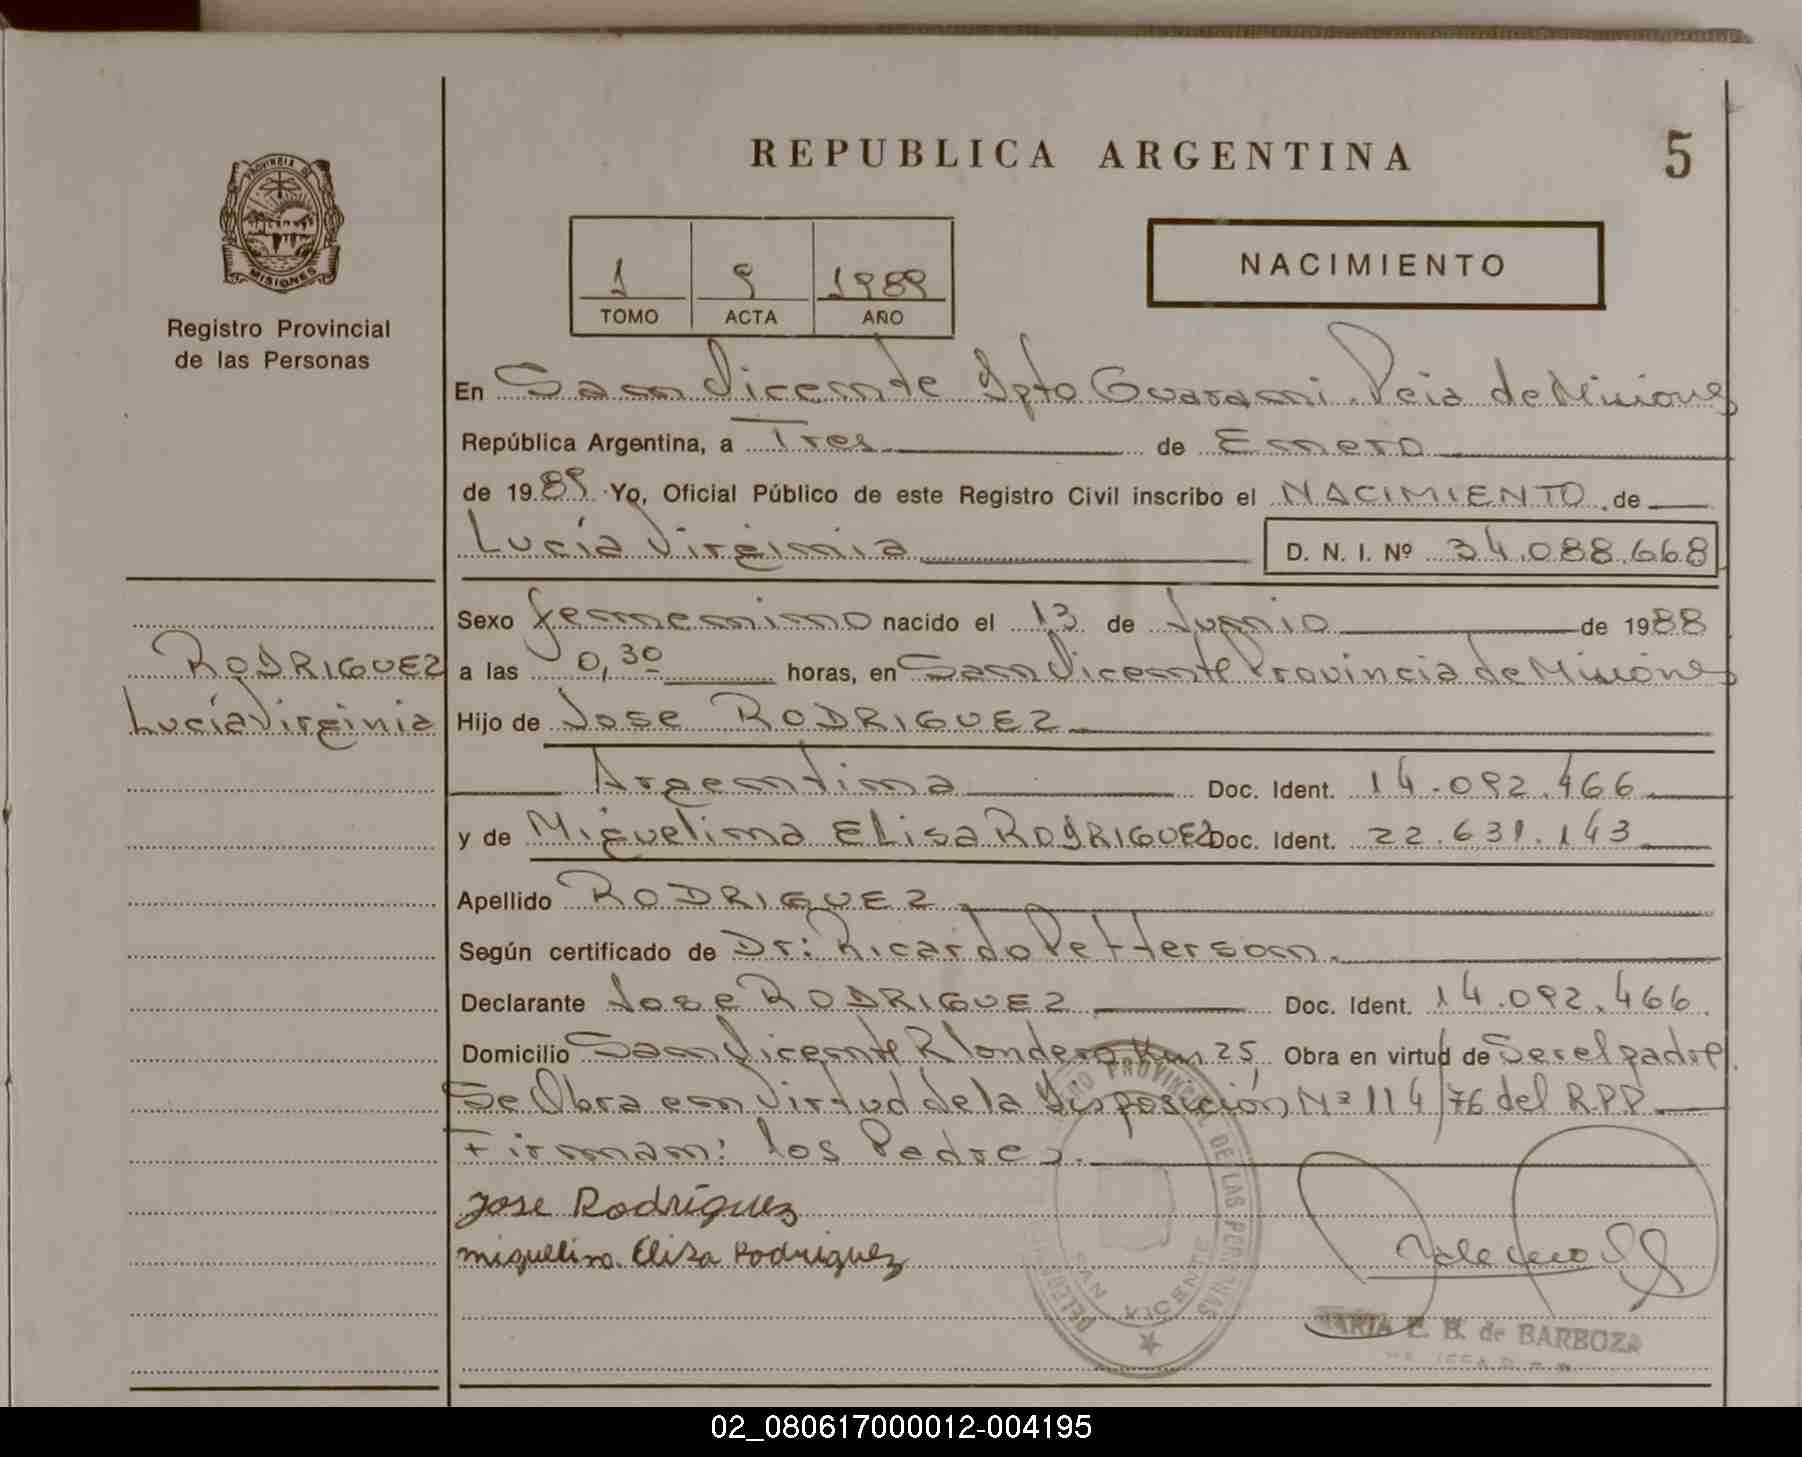 REPUBLICA ARGENTINA
5
PROVINCIA DE
MISIONES
Registro Provincial
de las Personas
1 9 1989
TOMO ACTA AÑO
NACIMIENTO
En San Vicente Dpto Guarani. Pcia de Misiones
República Argentina, a Tres de Enero
de 1989 Yo, Oficial Público de este Registro Civil inscribo el NACIMIENTO de
Lucía Virginia D. N. I. Nº 34.088.668
Sexo femenino nacido el 13 de Junio de 1988
RODRIGUEZ
Lucía Virginia
a las 0,30 horas, en San Vicente Provincia de Misiones
Hijo de Jose RODRIGUEZ
Argentina Doc. Ident. 14.092.466
y de Miguelina ELisa RODRIGUEZ Doc. Ident. 22.631.143
Apellido RODRIGUEZ
Según certificado de Dr: Ricardo Petterson.
Declarante Jose RODRIGUEZ Doc. Ident. 14.092.466.
Domicilio San Vicente R Londero Km 25, Obra en virtud de Ser el padre.
Se Obra en Virtud de la Disposición Nº 114/76 del R.P.P.
Firman: los Padres.
Jose Rodríguez
miguelina Elisa Rodriguez
PROVINCIAL DE LAS PERSONAS
SAN VICENTE
MARIA E. B. de BARBOZA
02_080617000012-004195